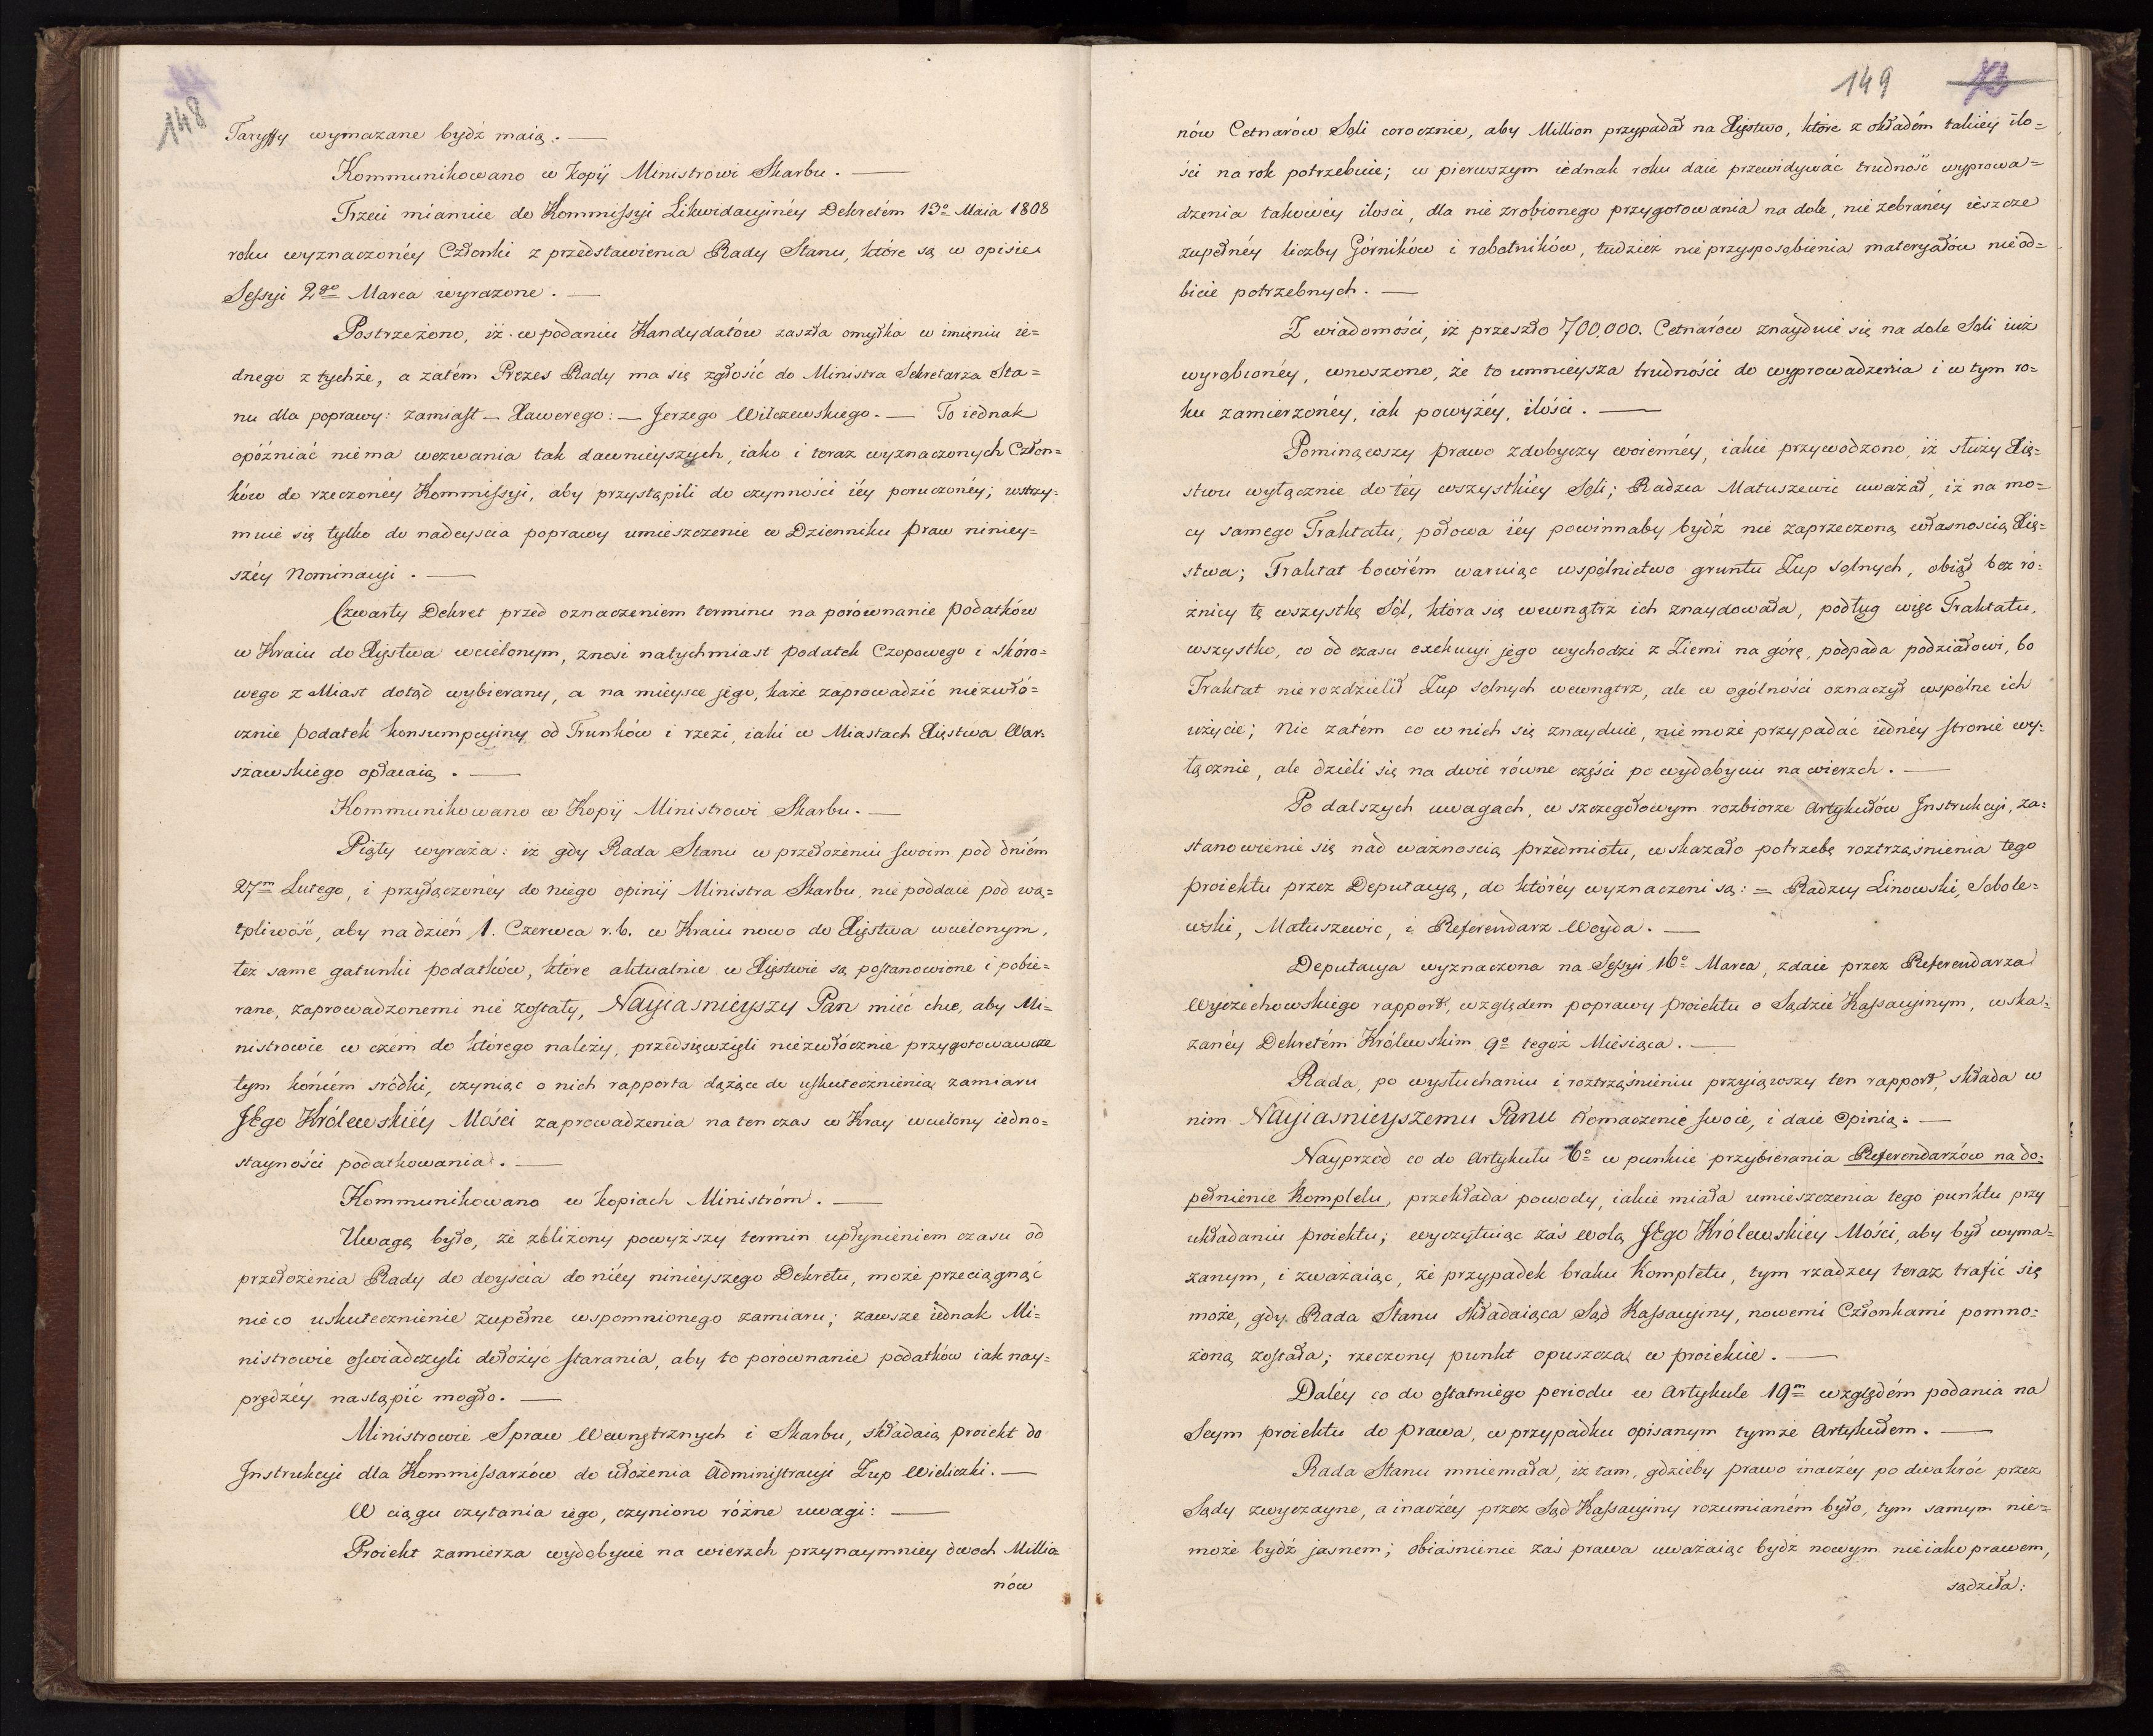 148
Taryffy wymazane bydź maią. —
Kommunikowano w Kopij Ministrowi Skarbu. —
Trzeci mianuie do Kommissyi Likwidacyinéy Dekretém 13º Maia 1808
roku wyznaczonéy Członki z przedstawienia Rady Stanu, które są w opisie
Sessyi 2go Marca wyrażone. —
Postrzeżono, iż w podaniu Kandydatów zaszła omyłka w imieniu ie=
dnego z tychże, a zatém Prezes Rady ma się zgłosić do Ministra Sekretarza Sta=
nu dla poprawy: zamiast — Xawerego: — Jerzego Wilczewskiego. — To iednak
opóźniać niema wezwania tak dawnieyszych, iako i teraz wyznaczonych Człon=
ków do rzeczonéy Kommissyi, aby przystąpili do czynności iéy poruczonéy; wstrzy=
muie się tylko do nadeyscia poprawy umieszczenie w Dzienniku praw niniey=
széy Nominacyi. —
Czwarty Dekret przed oznaczeniem terminu na porównanie podatków
w Kraiu do Xięstwa wcielonym, znosi natychmiast podatek Czopowego i skóro=
wego z Miast dotąd wybierany, a na mieysce jego, każe zaprowadzić niezwło=
cznie podatek konsumpcyiny od Trunków i rzezi, iaki w Miastach Xięstwa War=
szawskiego opłacaią. —
Kommunikowano w Kopij Ministrowi Skarbu. —
Piąty wyraża: iż gdy Rada Stanu w przełożeniu swoim pod dniém
27m Lutego, i przyłączonéy do niego opinij Ministra Skarbu, nie poddaie pod wą=
tpliwość, aby na dzień 1. Czerwca r. b. w Kraiu nowo do Xięstwa wcielonym,
też same gatunki podatków, które aktualnie w Xięstwie są postanowione i pobie=
rane, zaprowadzonemi nie zostały, Nayiasnieyszy Pan mieć chce, aby Mi=
nistrowie w czém do którego należy, przedsięwzięli niezwłócznie przygotowawcze
tym końcém sródki, czyniąc o nich rapporta dążące do uskutecznienia zamiaru
JEgo Królewskiéy Mości zaprowadzenia na ten czas w Kray wcielony iedno=
stayności podatkowania. —
Kommunikowano w kopiach Ministróm. —
Uwagą było, że zbliżony powyższy termin upłynieniem czasu od
przełożenia Rady do doyscia do niéy ninieyszego Dekretu, może przeciągnąć
nieco uskutecznienie zupełne wspomnionego zamiaru; zawsze iednak Mi=
nistrowie oswiadczyli dołożyć starania, aby to porównanie podatków iak nay=
prędzéy nastąpić mogło. —
Ministrowie Spraw Wewnętrznych i Skarbu, składaią proiekt do
Instrukcyi dla Kommissarzów do ułożenia Administracyi Żup Wieliczki. —
W ciągu czytania iego, czyniono różne uwagi: —
Proiekt zamierza wydobycie na wierzch przynaymniey dwoch Millio
nów
149
nów Cetnarów Soli corocznie, aby Million przypadał na Xięstwo, które z okładém takiéy ilo=
ści na rok potrzebuie; w pierwszym iednak roku daie przewidywać trudność wyprowa=
dzenia takowéy ilosci, dla nie zrobionego przygotowania na dole, nie zebranéy ieszcze
zupełnéy liczby Górników i robotników, tudzież nie przysposobienia materyałów nieod=
bicie potrzebnych. —
Z wiadomości, iż przeszło 700,000. Cetnarów znayduie się na dole Soli iuż
wyrobionéy, wnoszono, że to umnieysza trudności do wyprowadzenia i w tym ro=
ku zamierzonéy, iak powyżéy, ilości. —
Pominąwszy prawo zdobyczy woiennéy, iakie przywodzono, iż służy Xię=
stwu wyłącznie do téy wszystkiey Soli; Radzca Matuszewic uważał, iż na mo=
cy samego Traktatu, połowa iéy powinnaby bydź nie zaprzeczoną własnoscią Xię=
stwa; Traktat bowiém waruiąc wspólnictwo gruntu Żup solnych, obiął bez ró=
żnicy tę wszystkę Sól, która się wewnątrz ich znaydowała, podług więc Traktatu,
wszystko, co od czasu exekucyi jego wychodzi z Ziemi na górę, podpada podziałowi, bo
Traktat nierozdzielił Żup solnych wewnątrz, ale w ogólności oznaczył wspólne ich
użycie; Nic zatém co w nich się znayduie, nie może przypadać iednéy stronie wy=
łącznie, ale dzieli się na dwie równe części po wydobyciu na wierzch. —
Po dalszych uwagach, w szczegółowym rozbiorze Artykułów Instrukcyi, za=
stanowienie się nad ważnoscią przedmiotu, wskazało potrzebę roztrząsnienia tego
proiektu przez Deputacyą, do któréy wyznaczeni są: = Radzcy Linowski, Sobole=
wski, Matuszewic, i Referendarz Woyda. —
Deputacya wyznaczona na Sessyi 16º Marca, zdaie przez Referendarza
Wyczechowskiego rapport, względem poprawy proiektu o Sądzie Kassacyinym, wska=
zanéy Dekretém Królewskim 9º tegoż Miesiąca. —
Rada, po wysłuchaniu i roztrząśnieniu przyiąwszy ten rapport, składa w
nim Nayiasnieyszemu Panu tłomaczenie swoie, i daie Opinią: —
Nayprzód co do Artykułu 6º w punkcie przybierania Referendarzów na do=
pełnienie Kompletu, przekłada powody, iakie miała umieszczenia tego punktu przy
układaniu proiektu; wyczytuiąc zaś wolą JEgo Królewskiéy Mości, aby był wyma=
zanym, i zważaiąc, że przypadek braku Kompletu, tym rzadzey teraz trafić się
może, gdy Rada Stanu składaiąca Sąd Kassacyiny, nowemi Członkami pomno=
żoną została; rzeczony punkt opuszcza w proiekcie. —
Daléy co do ostatniego periodu w Artykule 19m względém podania na
Seym proiektu do prawa, w przypadku opisanym tymże Artykułem. —
Rada Stanu mniemała, iż tam, gdzieby prawo inaczéy po dwakróć przez
Sądy zwyczayne, a inaczéy przez Sąd Kassacyiny rozumianém było, tym samym nie=
może bydź jasnem; obiaśnienie zaś prawa uważaiąc bydź nowym nieiako prawem,
sądziła: